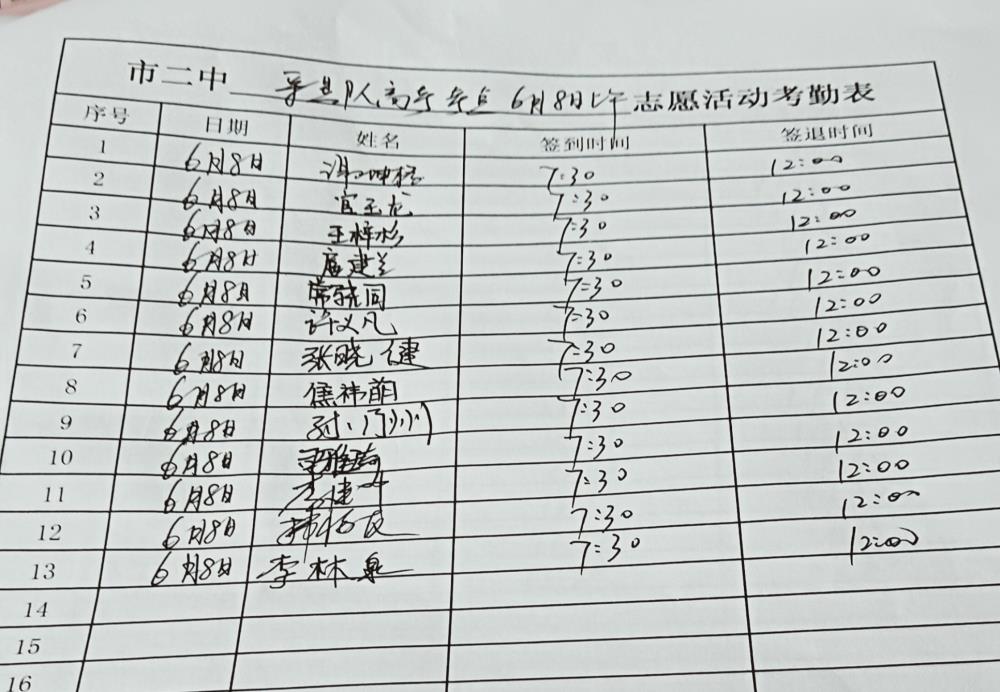 市二中 队高考考点6月8日上午志愿活动考勤表
序号 日期 姓名 签到时间 签退时间
1 6月8日 7:30 12:00
2 6月8日 官玉龙 7:30 12:00
3 6月8日 王梓杉 7:30 12:00
4 6月8日 7:30 12:00
5 6月8日 7:30 12:00
6 6月8日 许文凡 7:30 12:00
7 6月8日 张晓健 7:30 12:00
8 6月8日 焦祎萌 7:30 12:00
9 6月8日 7:30 12:00
10 6月8日 7:30 12:00
11 6月8日 7:30 12:00
12 6月8日 7:30 12:00
13 6月8日 李林泉 7:30 12:00
14
15
16